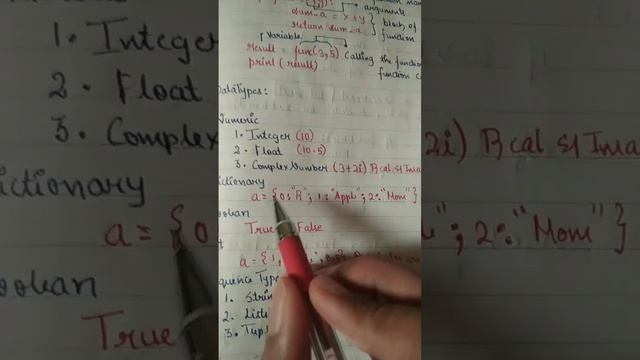 arguments
sum_a = x+y } block of
return sum_a } function
Variable
result = fun(3,5) Calling the function
print (result) function
DataTypes:
Numeric
1. Integer (10)
2. Float (10.5)
3. Complex Number (3+2i) Real & Ima
ictionary
a = {0:"R"; 1:"Appl"; 2:"Mom"}
oolean
True False
a = {1,
quence Type
1. Strin
2. Liste
3. Tupl
1. Integer
2. Float
3. Complex
ictionary
a = {0
oolean
True
2i) Real & Ima
"; 2:"Mom"}